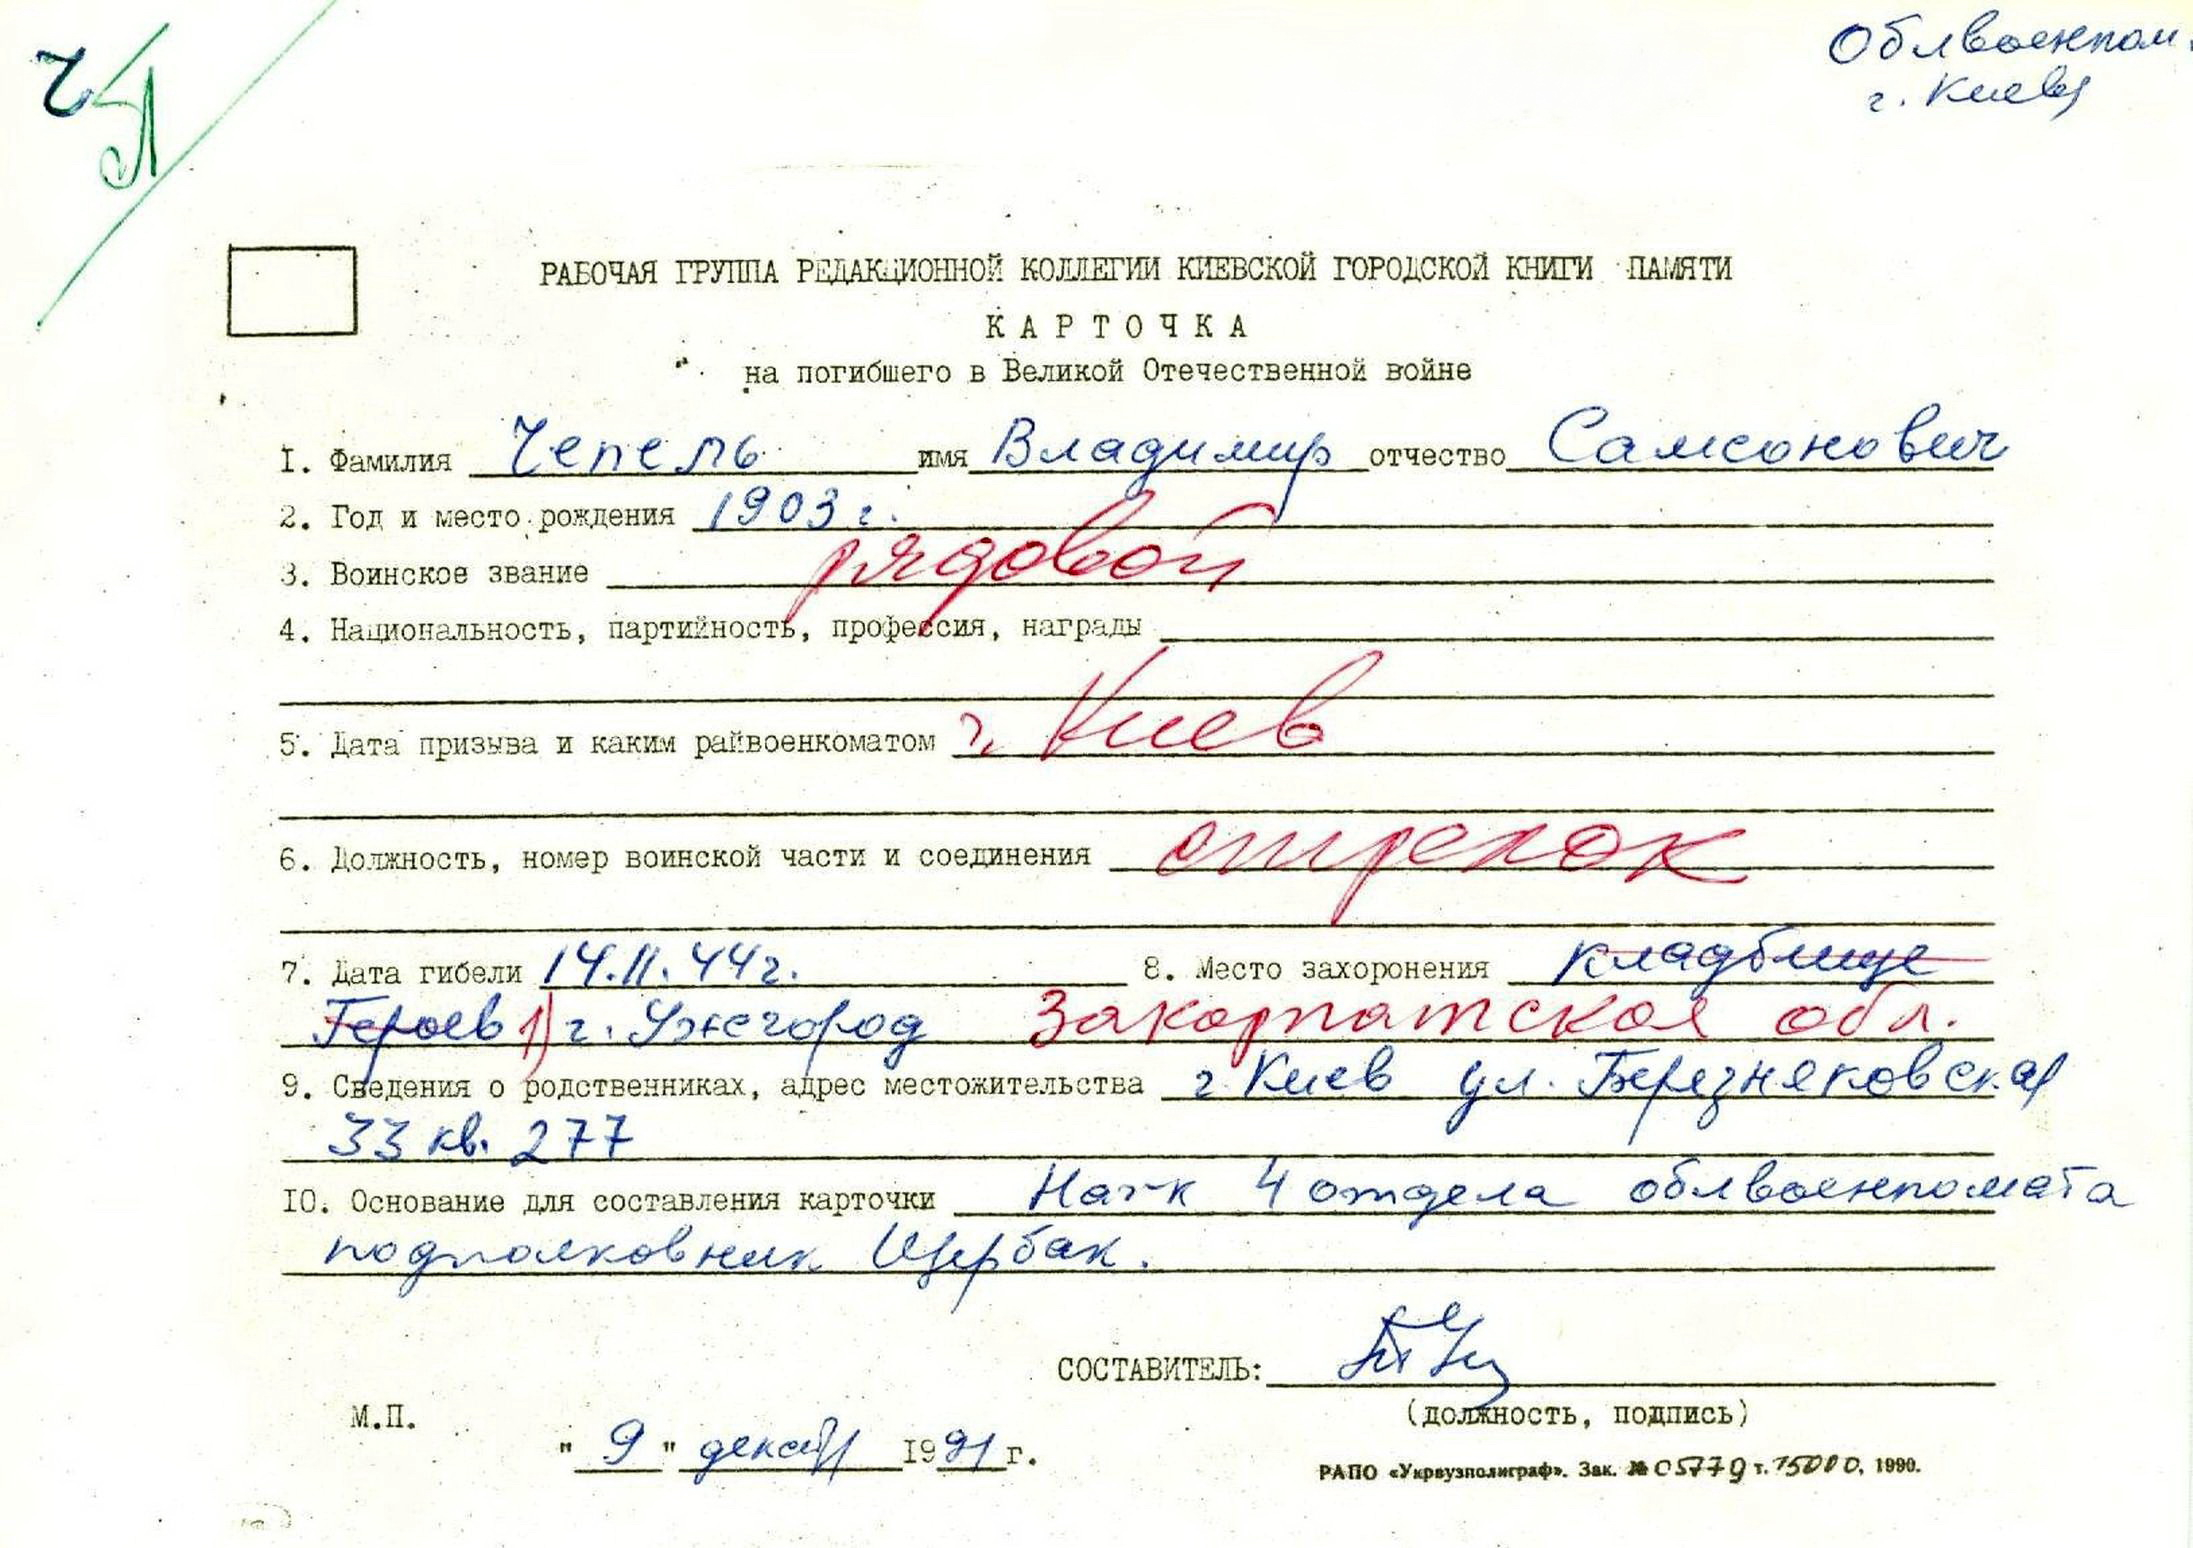 Облвоенком.
г. Киева
Ч
РАБОЧАЯ ГРУППА РЕДАКЦИОННОЙ КОЛЛЕГИИ КИЕВСКОЙ ГОРОДСКОЙ КНИГИ ПАМЯТИ
КАРТОЧКА
на погибшего в Великой Отечественной войне
I. Фамилия Чепель имя Владимир отчество Самсонович
2. Год и место рождения 1903 г.
3. Воинское звание рядовой
4. Национальность, партийность, профессия, награды
5. Дата призыва и каким райвоенкоматом г. Киев
6. Должность, номер воинской части и соединения стрелок
7. Дата гибели 14.11.44г. 8. Место захоронения кладбище
Героев 1) г. Ужгород Закарпатская обл.
9. Сведения о родственниках, адрес местожительства г. Киев ул. Березняковская
33 кв. 277
IO. Основание для составления карточки Нач-к 4 отдела облвоенкомата
подполковник Щербак.
СОСТАВИТЕЛЬ:
(должность, подпись)
М.П.
" 9 " декаб 1991 г.
РАПО «Укрвузполиграф». Зак. № 05779 т. 15000, 1990.